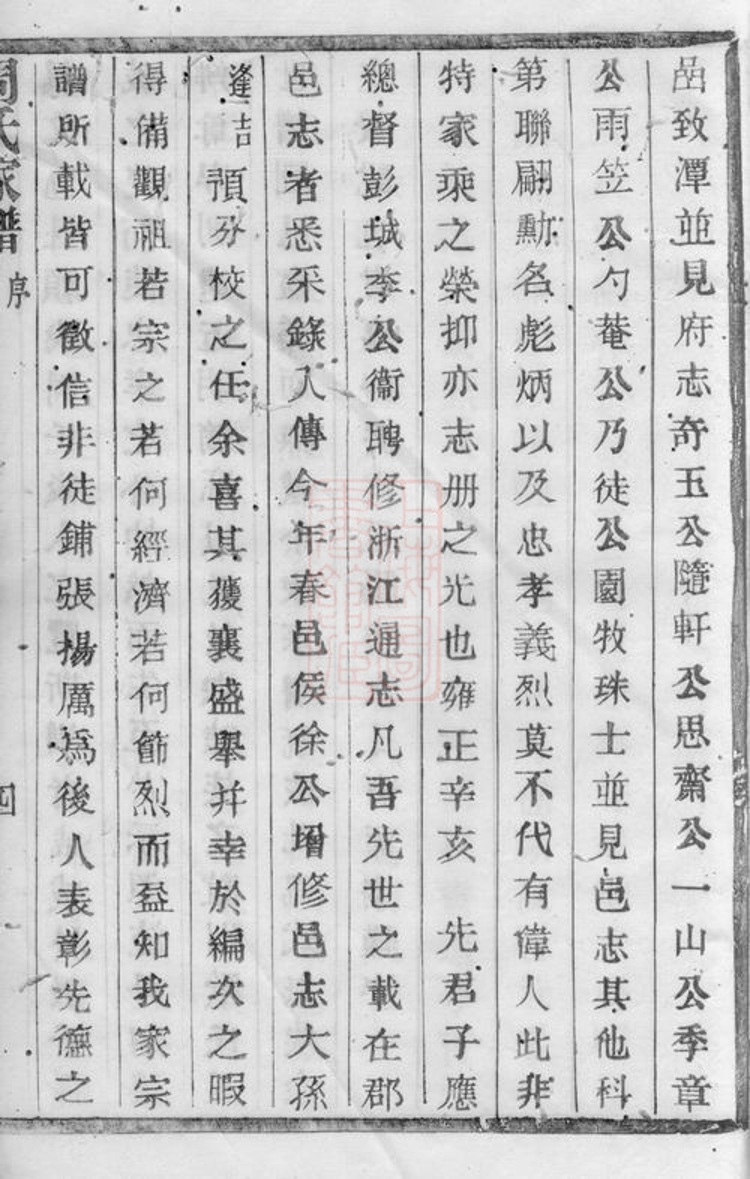 嵒致潭並見府志奇玉公隨軒公思齋公一山公季章
公雨笠公勺菴公乃徒公園牧珠士並見邑志其他科
第聯翩勳名彪炳以及忠孝義烈莫不代有偉人此非
特家乘之榮抑亦志册之光也雍正辛亥 先君子應
總督彭城李公衞聘修浙江通志凡吾先世之載在郡
邑志者悉采錄入傳今年春邑侯徐公增修邑志大孫
逢吉預分校之任余喜其獲襄盛舉并幸於編次之暇
得備觀祖若宗之若何經濟若何節烈而益知我家宗
譜所載皆可徵信非徒鋪張揚厲爲後人表彰先德之
周氏家譜 序 四